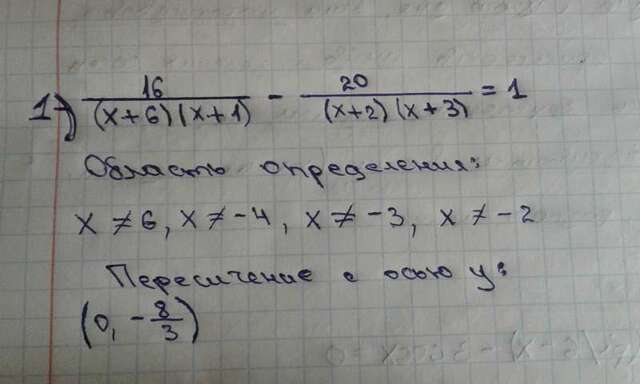 1) 16/((x+6)(x+1)) - 20/((x+2)(x+3)) = 1
Область определения:
x ≠ 6, x ≠ -4, x ≠ -3, x ≠ -2
Пересичение с осью y:
(0, -8/3)